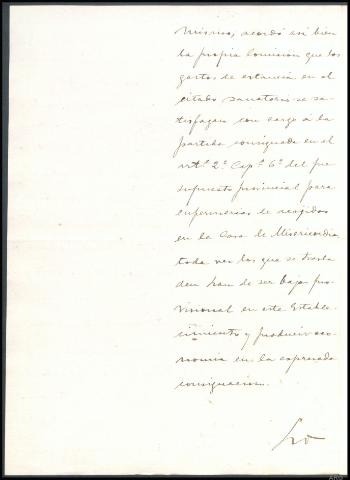 mismo, acordó así bien
la propia Comisión que los
gastos de estancia en el
citado sanatorio se sa-
tisfagan con cargo á la
partida consignada en el
artº. 2º. Capº. 6º del pre
supuesto provincial para
enfermerías de acojidos
en la Casa de Misericordia,
toda vez los que se trasla
den han de ser baja pro
visional en este Estable-
cimiento y producir eco-
nomia en la expresada
consignación.